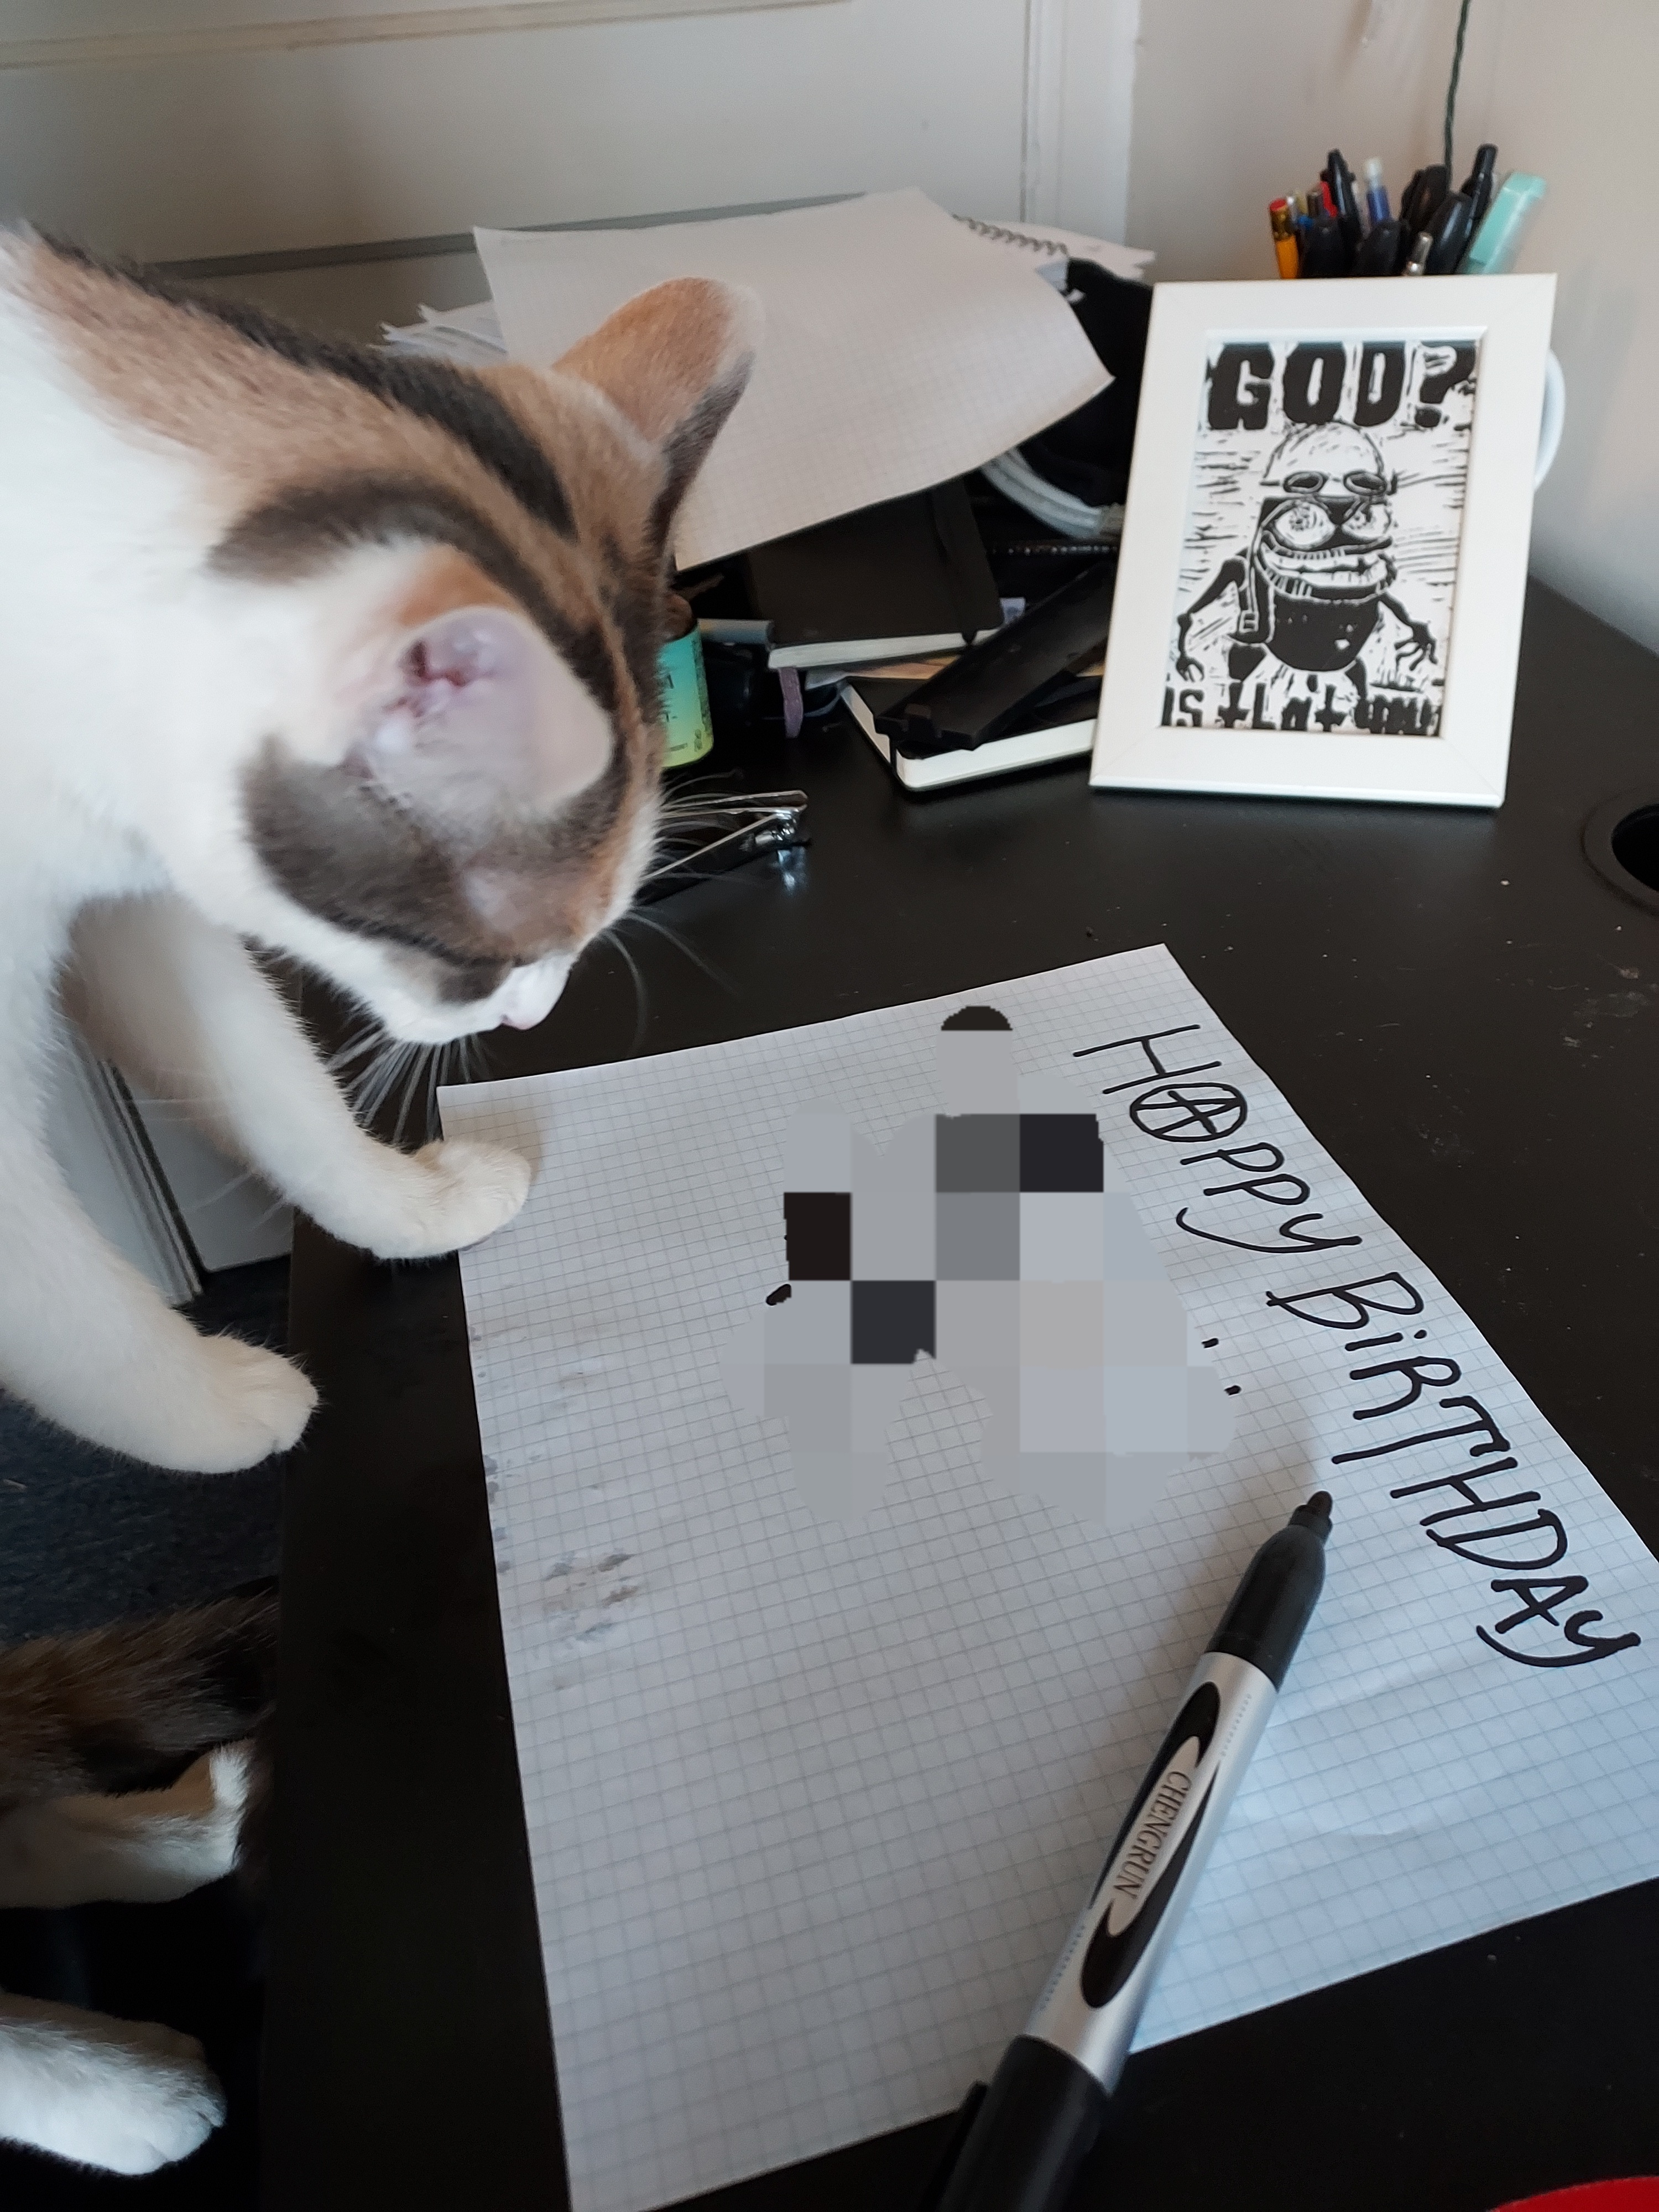 GOD?
IS tHAt YOU
HAPPY BiRTHDAY
CHENGRUN